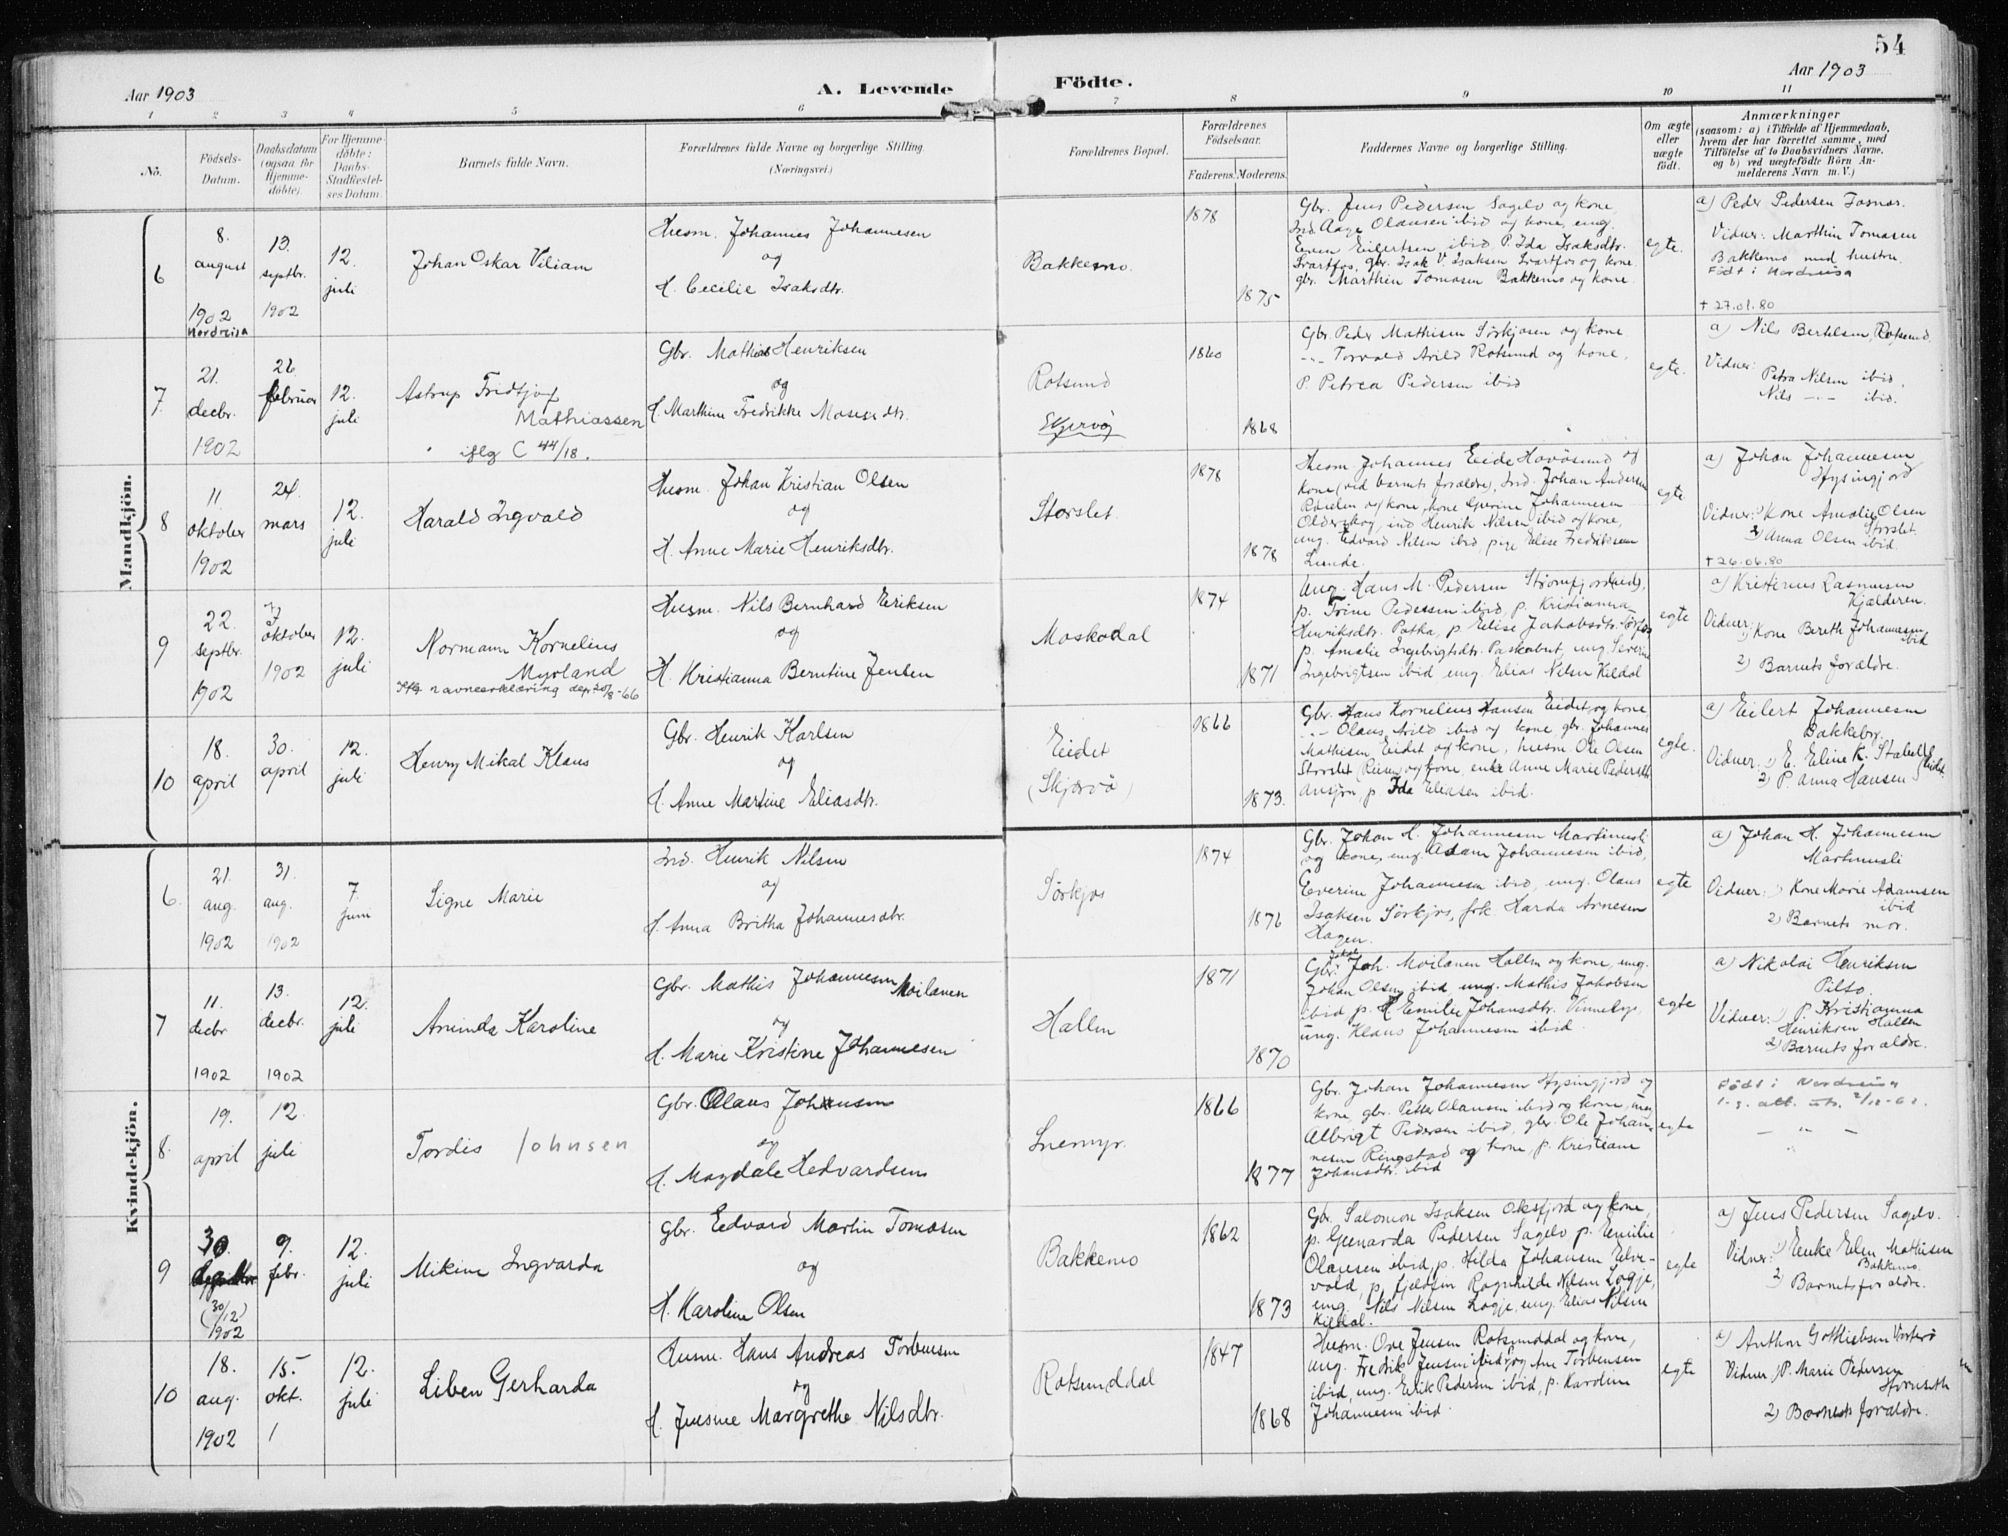 54
Aar 1903
A. Levende
Födte.
Aar 1903
1 2 3 4 5 6 7 8 9 10 11
No.
Födsels-
Datum.
Daabsdatum
(ogsaa för
Hjemme-
döbte).
For Hjemme-
döbte:
Daabs-
Stadfæstel-
ses Datum.
Barnets fulde Navn.
Forældrenes fulde Navne og borgerlige Stilling
(Næringsvei.)
Forældrenes Bopæl.
Forældrenes
Födselsaar.
Faderens. Moderens.
Faddernes Navne og borgerlige Stilling.
Om ægte
eller
uægte
födt.
Anmærkninger
(saasom: a) i Tilfælde af Hjemmedaab,
hvem der har forrettet samme, med
Tilföielse af to Daabsvidners Navne,
og b) ved uægtefödte Börn An-
melderens Navn m. V.)
Mandkjön.
6
8.
august
1902
Nordreisa
13.
septbr.
1902
12.
juli
Johan Oskar Viliam
Husm. Johannes Johannesen
og
H. Cecilie Isaksdtr.
Bakkemo.
1878
1875
Gbr. Jens Pedersen Sagelv og kone
Ind. Aage Olausen ibid og kone, ung.
Einen Eilertsen ibid, P. Ida Isaksdtr.
Svartfos, gbr. Isak V. Isaksen Svartfos og kone
gbr. Marthin Tomasen Bakkemo og kone.
egte.
a) Peder Pedersen
Vidner: Marthin Tomasen
Bakkemo med hustru.
Født i Nordreisa
† 27.01.80
7
21.
decbr.
1902
26
februar
12.
juli
Astrup Fridtjof
Mathiassen
iflg C 44/18.
Gbr. Mathias Henriksen
og
H. Marthine Fredrikke Mosesdtr.
Rotsund
Skjervøy
1860
1868
Gbr. Peder Mathisen Sørkjosen og kone
-"- Torvald Arild Rotsund og kone,
P. Petrea Pedersen ibid
egte.
a) Nils Bertelsen, Rotsund.
Vidner:
Petra Nilsen ibid.
Nils -"- ibid.
8
11.
oktober
1902
24
mars
12.
juli
Harald Ingvald
Husm. Johan Kristian Olsen
og
H. Anne Marie Henriksdtr.
Storslet.
1878
1878
Husm Johannes Eide Havøsund og
kone (ved barnets forældre), Ind. Johan Andersen
Røielen og kone, kone Gurine Johannesen
Olderskog, ind Henrik Nilsen ibid og kone,
ung. Edvard Nilsen ibid, pige Elise Fredriksen
Lunde.
egte
a) Johan Johannesen
Hysingjord
Vidner: 1) Kone Amalie Olsen
Storslet.
2) Anna Olsen ibid.
† 26.06.80
9
22.
septbr.
1902
3
oktober
1902
12.
juli
Normann Kornelius
Myrland
Iflg navneerklæring dep 20/8-66
Husm. Nils Bernhard Eriksen
og
H. Kristianna Berntine Jensen
Moskodal
1874
1871
Ung. Hans M. Pedersen Strømfjordneds,
p. Trine Pedersen ibid, p. Kristianna
Henriksdtr. Potka, p. Elise Jakobsdtr. Sørfos
p. Amalie Ingebrigtsdtr. Paskabut, ung. Severin
Ingebrigtsen ibid ung Elias Nilsen Kildal
egte
a) Kristinus Rasmusen
Kjælderen.
Vidner:
1) Kone Bereth Johannesen
ibid
2) Barnets forældre.
10
18.
april
30.
april
12.
juli
Henry Mikal Klaus
Gbr. Henrik Karlsen
og
H. Anne Martine Eliasdtr.
Eidet
(Skjærvø)
1866
1873.
Gbr. Hans Kornelius Hansen Eidet og kone
-"- Olaus Arild ibid og kone, gbr. Johannes
Mathisen Eidet og kone, husm. Ole Olsen
Storslet (Reisen) og kone, enke Anne Marie Pedersdtr
ansjøn, p Ida Eliasen ibid.
egte.
a) Eilert Johannesen
Bakkeby.
Vidner: 1) E. Eline K.
2) P. Anna Hansen Eidet.
Kvindekjön.
6.
21.
aug.
1902
31.
aug.
1902
7.
juni
Signe Marie
Ind. Henrik Nilsen
og
H. Anna Britha Johannesdtr.
Sørkjos
1874
1876
Gbr. Johan H. Johannesen Martinusli
og kone, ung. Adam Johannesen ibid,
Everine Johannesen ibid, ung. Olaus
Isaksen Sørkjos, frk. Harda Arnesen
Hagen.
egte
a) Johan H. Johannesen
Martinusli
Vidner: 1) Kone Marie Adamsen
ibid
2) Barnets mor.
7
11.
decbr
1902
13.
decbr.
1902
12.
juli
Aminda Karoline
Gbr. Mathis Johannesen Moilanen
og
H. Marie Kristine Johannesen
Hallen
1871
1870
Gbr. Joh. Moilanen Hallen og kone, ung.
Johan Olsen ibid ung. Mathis Jakobsen
ibid p. Emilie Johansdtr. Vinnelys,
ung. Klaus Johannesen ibid.
egte
a) Nikolai Henriksen
Pilto.
Vidner: 1) p. Kristianna
Henriksen Hallen
2) Barnets forældre.
8.
19.
april
12
juli
Tordis Johnsen
Gbr. Olaus Johnsen
og
H. Magdale Hedvardsen
Snemyr.
1866
1877
Gbr. Johan Johannesen Hysingjord og
kone gbr. Petter Olausen ibid og kone, ung
Albrigt Pedersen ibid, gbr. Ole Johan-
nesen Ringstad og kone, p. Kristiane
Johansdtr. ibid
egte
Født i Nordreisa
9
30.
(30/12)
1902
9.
febr.
12.
juli
Mikine Ingvarda
Gbr. Edvard Martin Tomasen
og
H. Karoline Olsen
Bakkemo
1862
1873
Gbr. Salomon Isaksen Oksfjord og kone,
p. Gunarda Pedersen Sagelv p. Emilie
Olausen ibid, p. Hilda Johansen Elve-
vold, p. fjeldfin Ragnhilde Nilsen Logje,
ung. Nils Nilsen Logje, ung. Elias Nilsen
Kildal.
egte
a) Jens Pedersen Sagelv.
Vidner: 1) Enke Elen Mathisen
Bakkemo.
2) Barnets forældre.
10
18.
aug.
1902
15.
okt.
12.
juli
Liben Gerharda
Husm. Hans Andreas Torbensen
og
H. Jensine Margrethe Nilsdtr.
Rotsunddal
1847
1868
Husm. Ove Jensen Rotsunddal og kone,
ung. Fredrik Jensen ibid og Ane Torbensen
ibid, ung. Erik Pedersen ibid, p. Karoline
Johannesen ibid.
egte
a) Anthon Gottliebsen Vorterø
Vidner 1) P. Marie Pedersen
Hornseth
2) Barnets forældre.